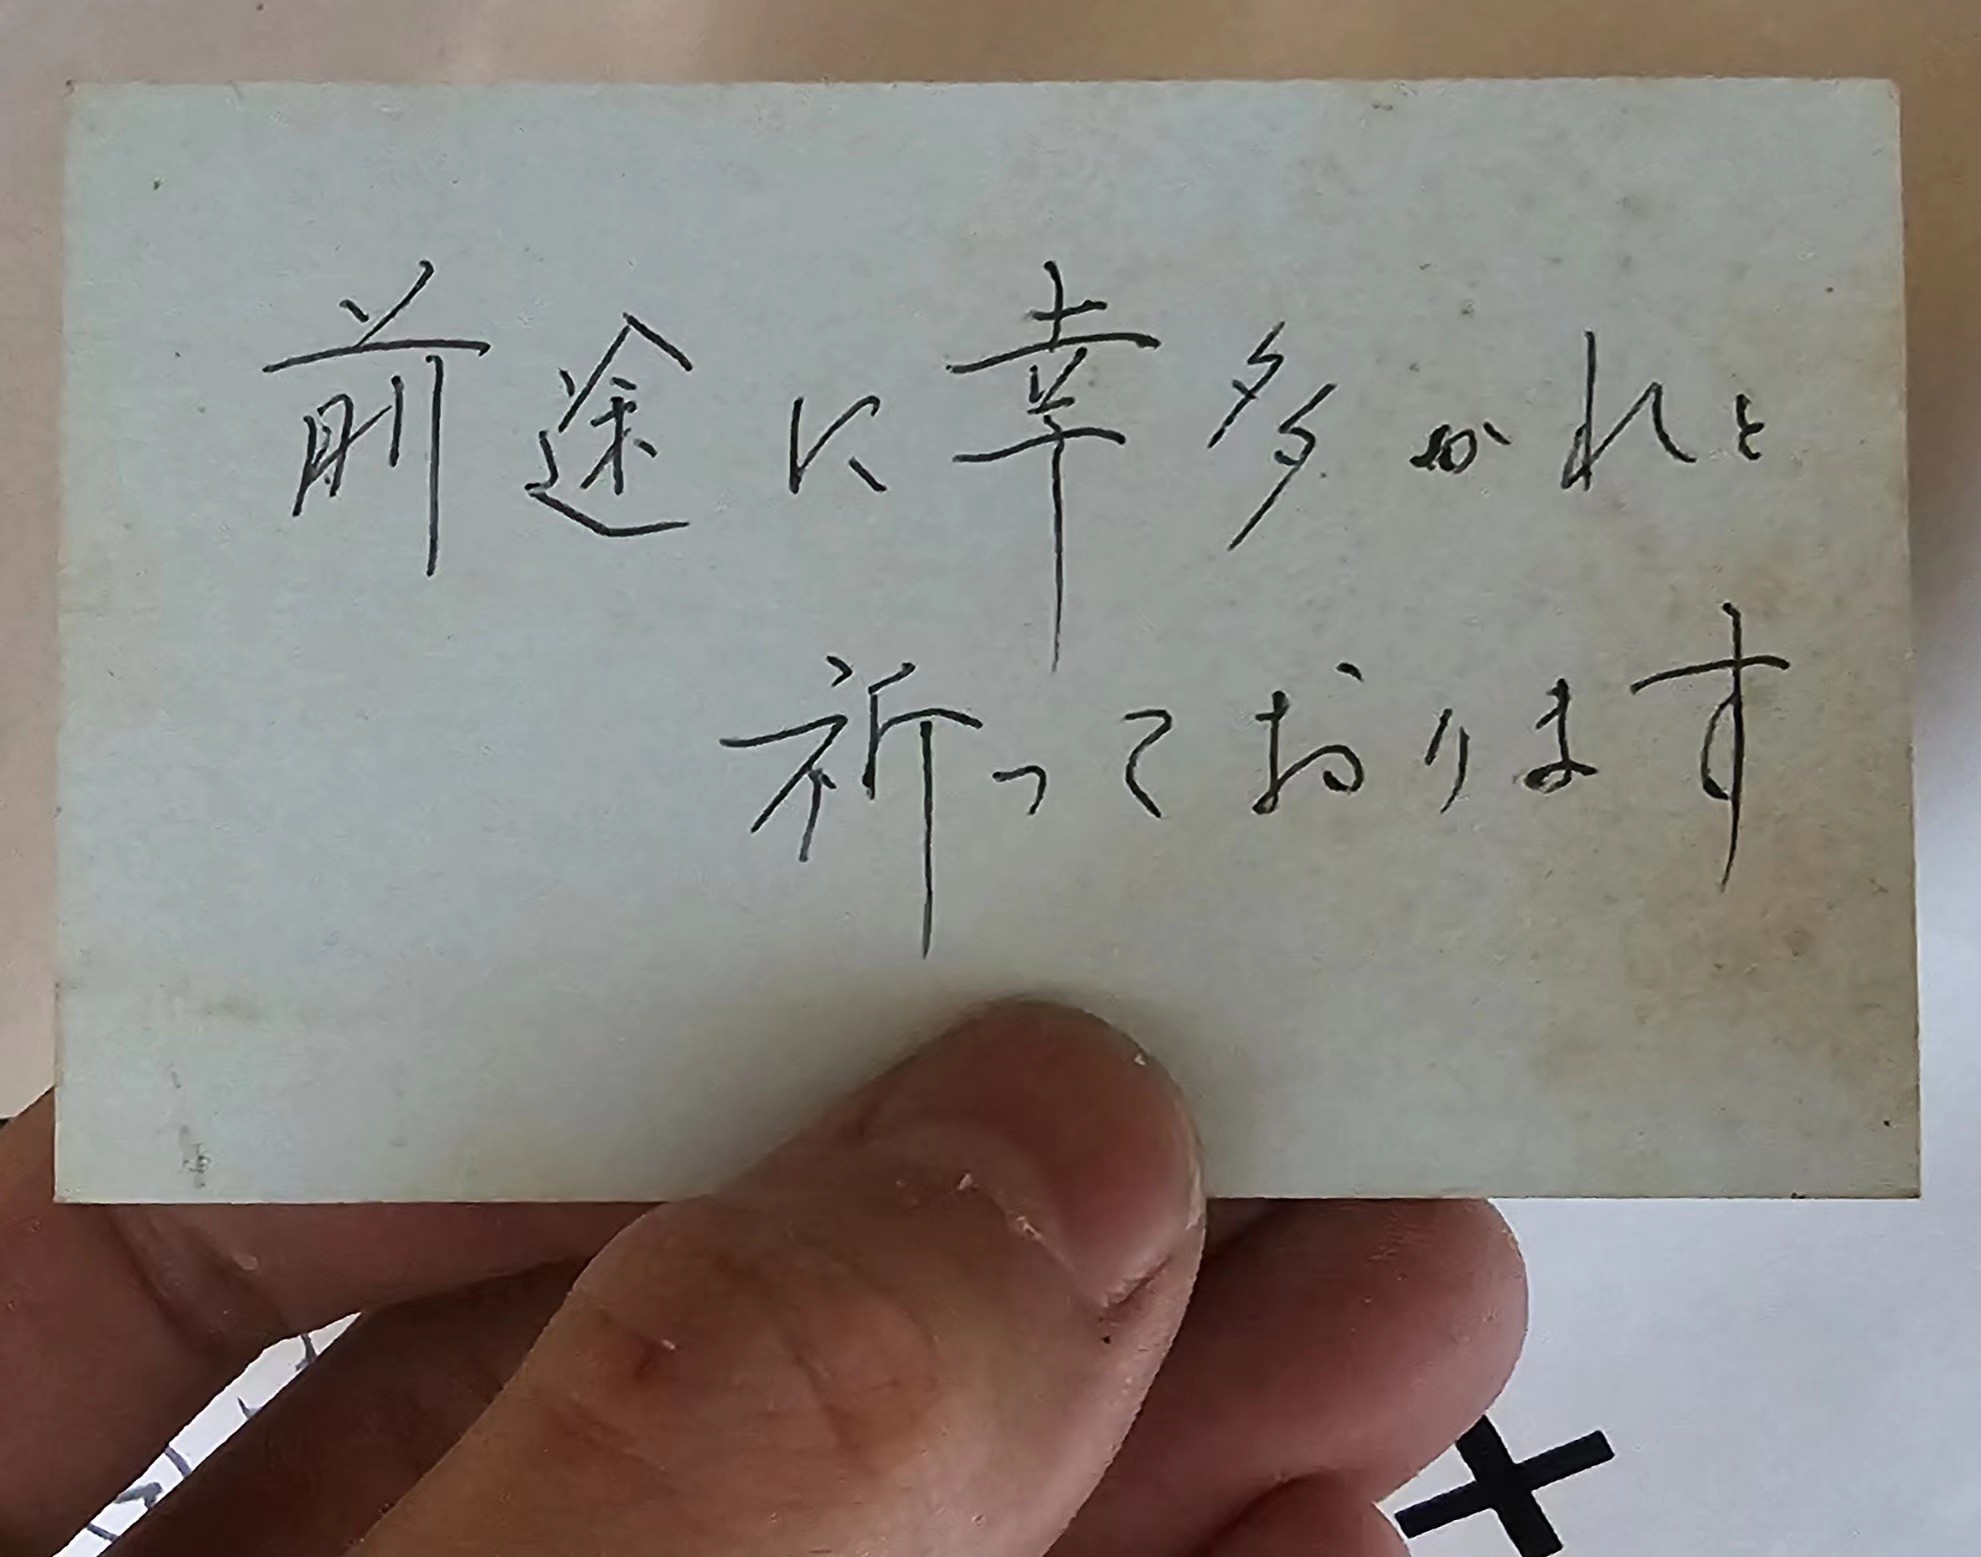 前途に幸多かれと
祈っております